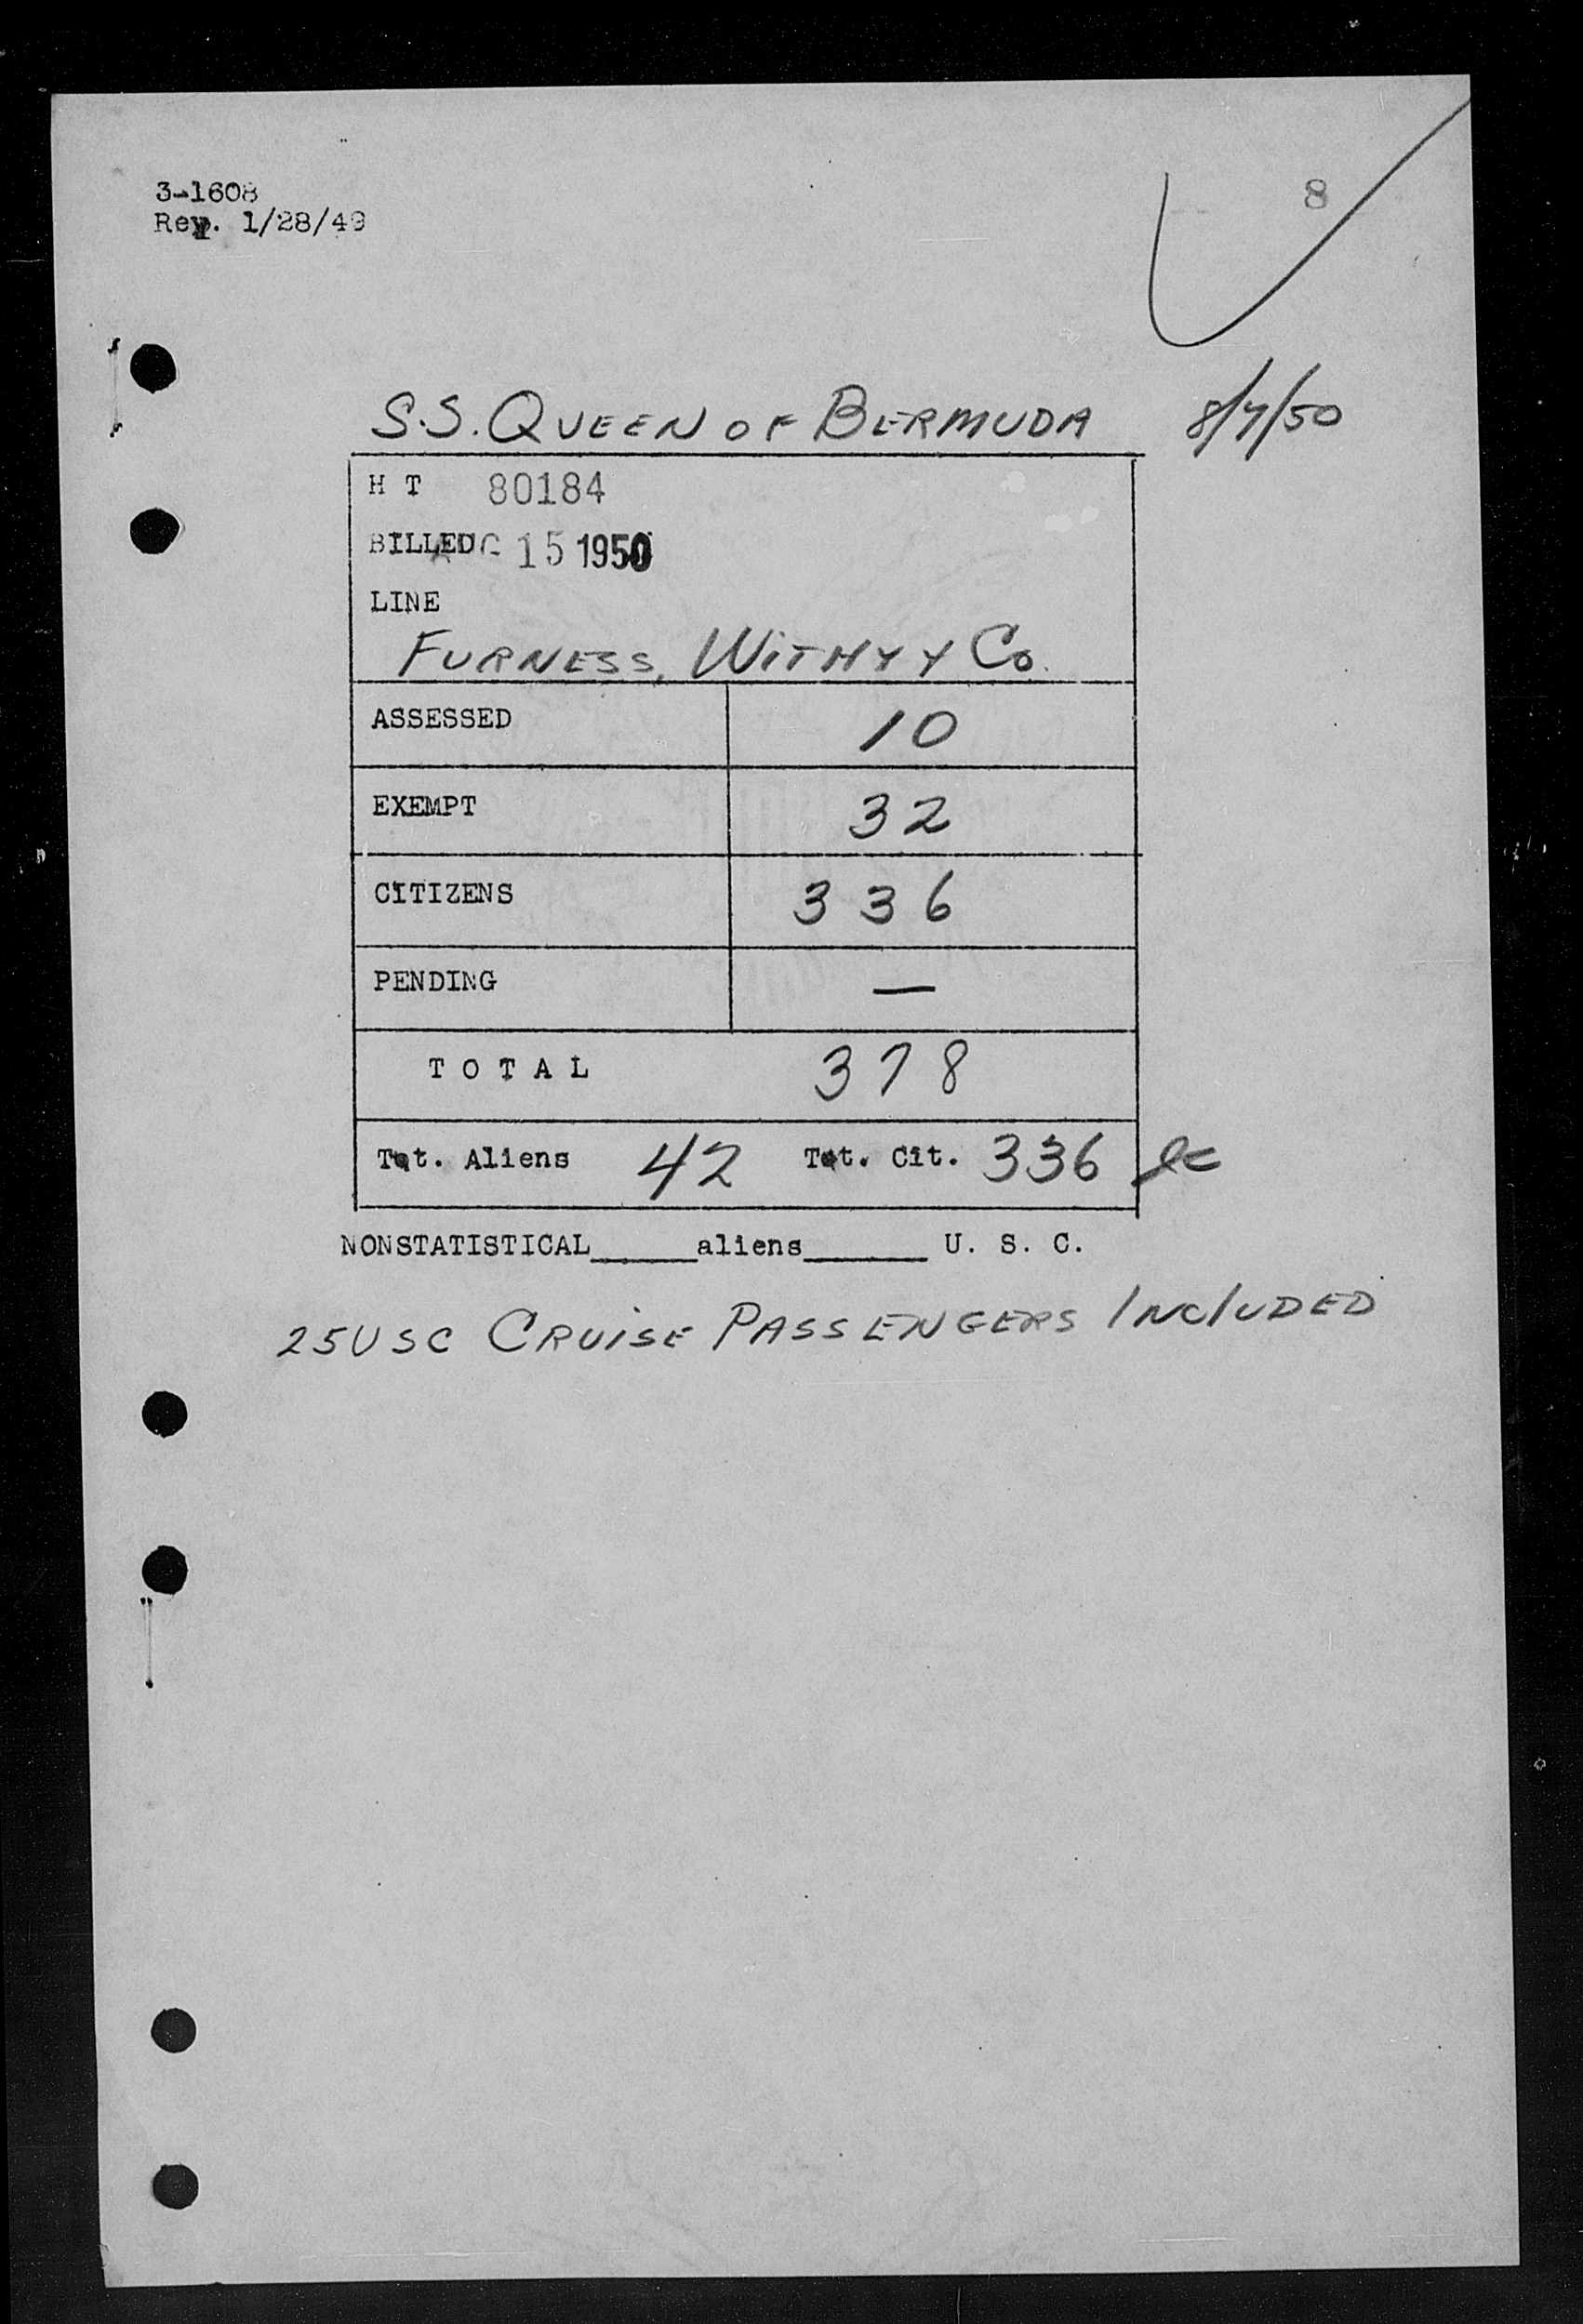 3-1608
8
Rev. 1/28/49
S.S. QUEEN OF BERMUDA 8/7/50
H T 80184
BILLED AUG 15 1950
LINE
FURNESS, WITHY Y Co.
ASSESSED 10
EXEMPT 32
CITIZENS 336
PENDING —
TOTAL 378
Tot. Aliens 42 Tot. Cit. 336
NONSTATISTICAL______aliens_______ U. S. C.
25 USC CRUISE PASSENGERS INCLUDED